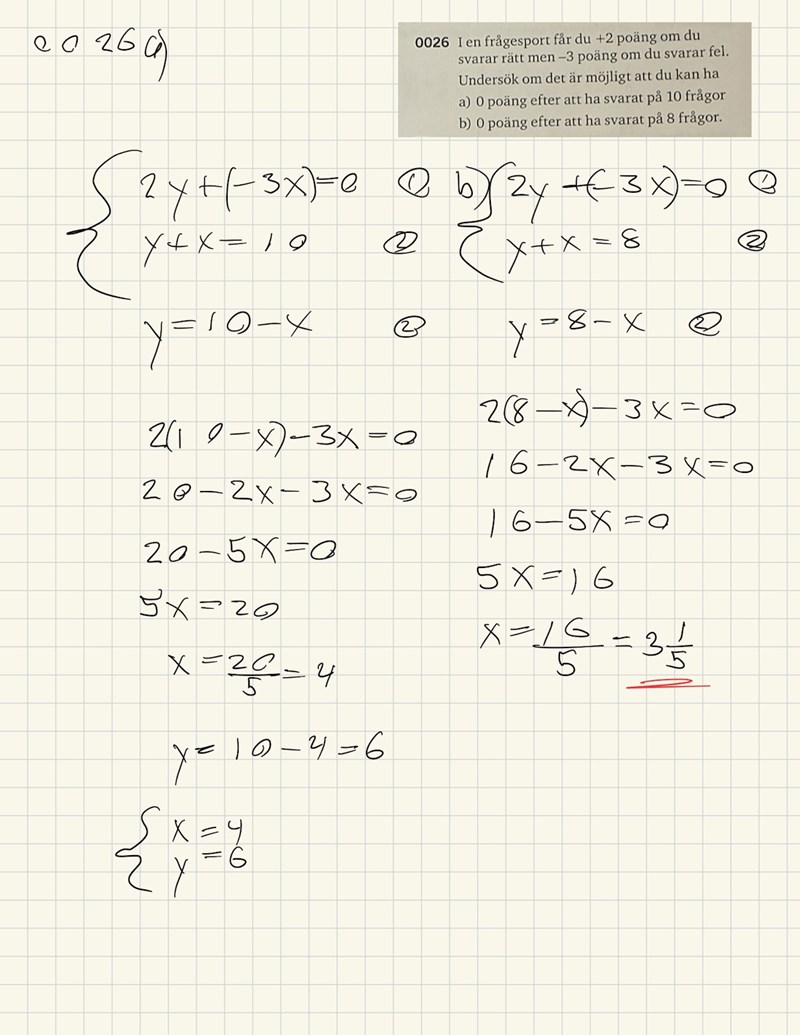 0026 a)
0026 I en frågesport får du +2 poäng om du
svarar rätt men –3 poäng om du svarar fel.
Undersök om det är möjligt att du kan ha
a) 0 poäng efter att ha svarat på 10 frågor
b) 0 poäng efter att ha svarat på 8 frågor.
2y+(-3x)=0 ①
y+x=10 ②
y=10-x ②
2(10-x)-3x=0
20-2x-3x=0
20-5x=0
5x=20
x=20/5=4
y=10-4=6
x=4
y=6
b) 2y+(-3x)=0 ①
y+x=8 ②
y=8-x ②
2(8-x)-3x=0
16-2x-3x=0
16-5x=0
5x=16
x=16/5=3 1/5